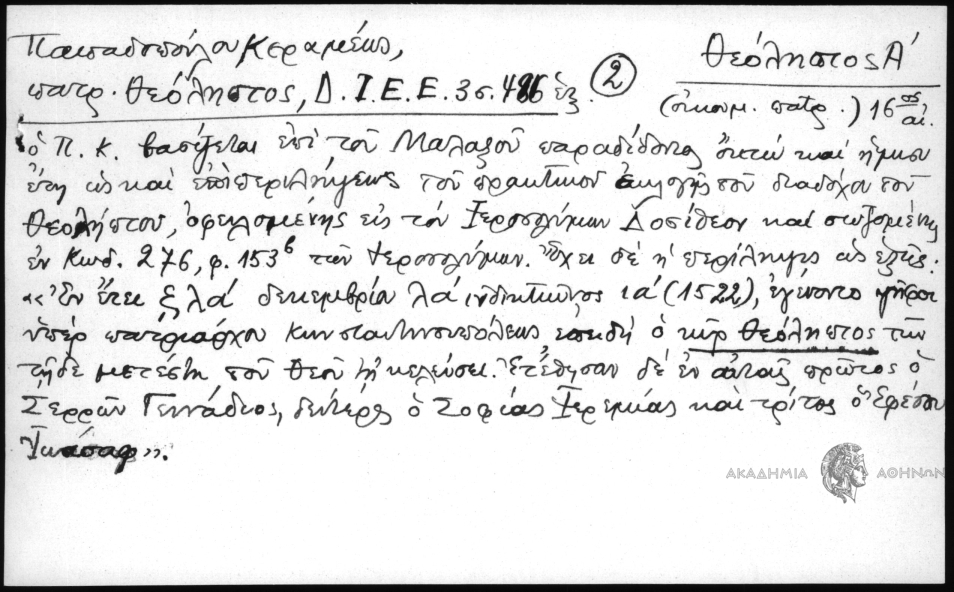 Παπαδοπούλου Κεραμέως,
πατρ. Θεόληπτος, Δ.Ι.Ε.Ε. 3 σ. 486 ἑξ. ②
Θεόληπτος Α΄
(οἰκουμ. πατρ.) 16ος αἰ.
ὁ Π. Κ. βασίζεται ἐπὶ τοῦ Μαλαξοῦ παραδίδοντος ὀκτὼ καὶ ἥμισυ
ἔτη ὡς καὶ ἐπὶ περιλήψεως τοῦ πρακτικοῦ ἐκλογῆς τοῦ διαδόχου τοῦ
Θεολήπτου, ὀφειλομένης εἰς τὸν Ἱεροσολύμων Δοσίθεον καὶ σωζομένης
ἐν Κωδ. 276, φ. 153β τῶν Ἱεροσολύμων. Ἔχει δὲ ἡ περίληψις ὡς ἑξῆς:
«Ἐν ἔτει ζλα΄ δεκεμβρίῳ λα΄ ἰνδικτιῶνος ια΄ (1522), ἐγένοντο ψῆφοι
ὑπὲρ πατριάρχου Κωνσταντινουπόλεως, ἐπειδὴ ὁ κὺρ Θεόληπτος τῶν
τῇδε μετέστη τοῦ Θεοῦ τῇ κελεύσει. Ἐτέθησαν δὲ ἐν αὐταῖς πρῶτος ὁ
Σερρῶν Γεννάδιος, δεύτερος ὁ Σοφίας Ἱερεμίας καὶ τρίτος ὁ Ἐφέσου
Ἰωάσαφ».
ΑΚΑΔΗΜΙΑ ΑΘΗΝΩΝ